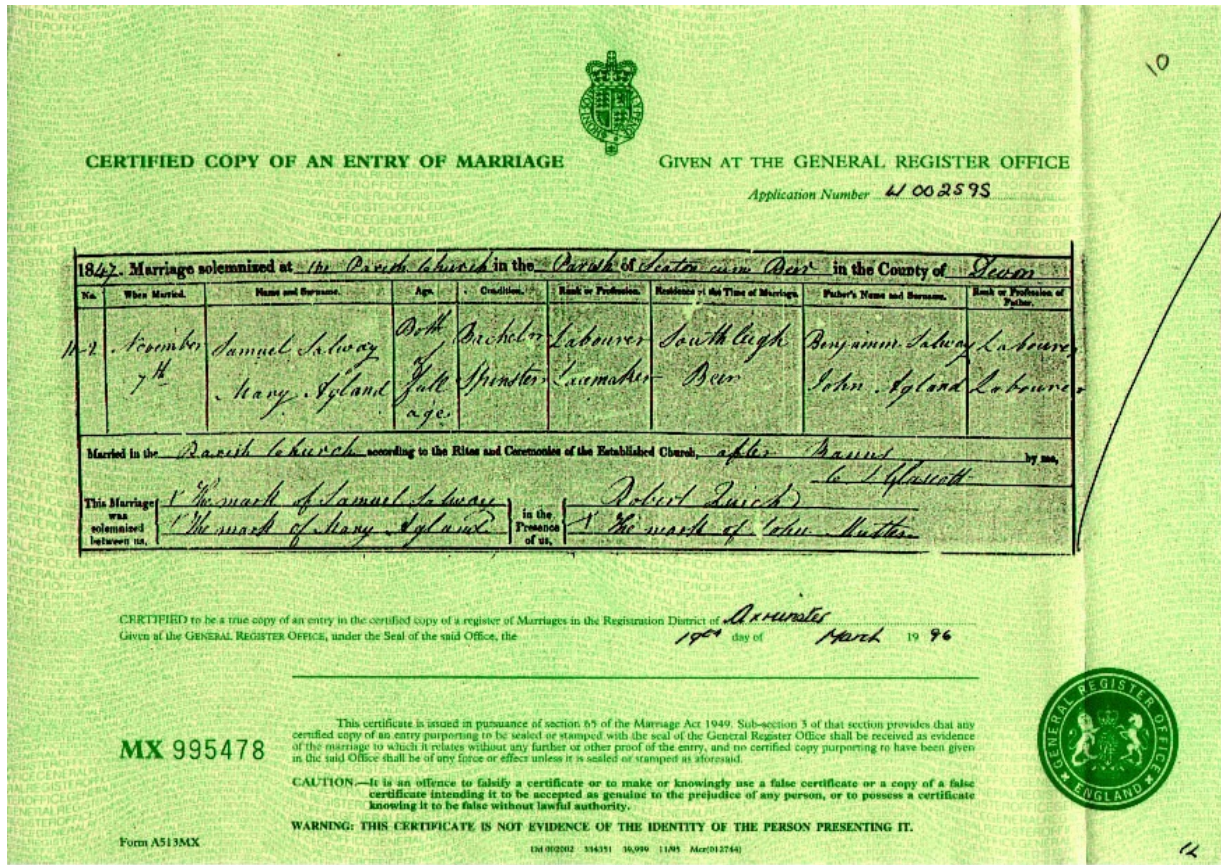 10
CERTIFIED COPY OF AN ENTRY OF MARRIAGE GIVEN AT THE GENERAL REGISTER OFFICE
Application Number W 002595
1847. Marriage solemnized at the Parish Church in the Parish of Seaton cum Beer in the County of Devon
No. When Married. Name and Surname. Age. Condition. Rank or Profession. Residence at the Time of Marriage. Father's Name and Surname. Rank or Profession of Father.
November Samuel Salway Both Bachelor Labourer Southleigh Benjamin Salway Labourer
7th Mary Agland of Full age Spinster Lacemaker Beer John Agland Labourer
Married in the Parish Church according to the Rites and Ceremonies of the Established Church, after Banns by me,
Glascott
This Marriage was solemnized between us, X The mark of Samuel Salway in the Presence of us, Robert Quick
X The mark of Mary Agland X The mark of John Mutter
CERTIFIED to be a true copy of an entry in the certified copy of a register of Marriages in the Registration District of Axminster
Given at the GENERAL REGISTER OFFICE, under the Seal of the said Office, the 19th day of March 19 96
This certificate is issued in pursuance of section 65 of the Marriage Act 1949. Sub-section 3 of that section provides that any
certified copy of an entry purporting to be sealed or stamped with the seal of the General Register Office shall be received as evidence
of the marriage to which it relates without any further or other proof of the entry, and no certified copy purporting to have been given
in the said Office shall be of any force or effect unless it is sealed or stamped as aforesaid.
MX 995478
CAUTION.—It is an offence to falsify a certificate or to make or knowingly use a false certificate or a copy of a false
certificate intending it to be accepted as genuine to the prejudice of any person, or to possess a certificate
knowing it to be false without lawful authority.
WARNING: THIS CERTIFICATE IS NOT EVIDENCE OF THE IDENTITY OF THE PERSON PRESENTING IT.
GENERAL REGISTER OFFICE ENGLAND
Form A513MX